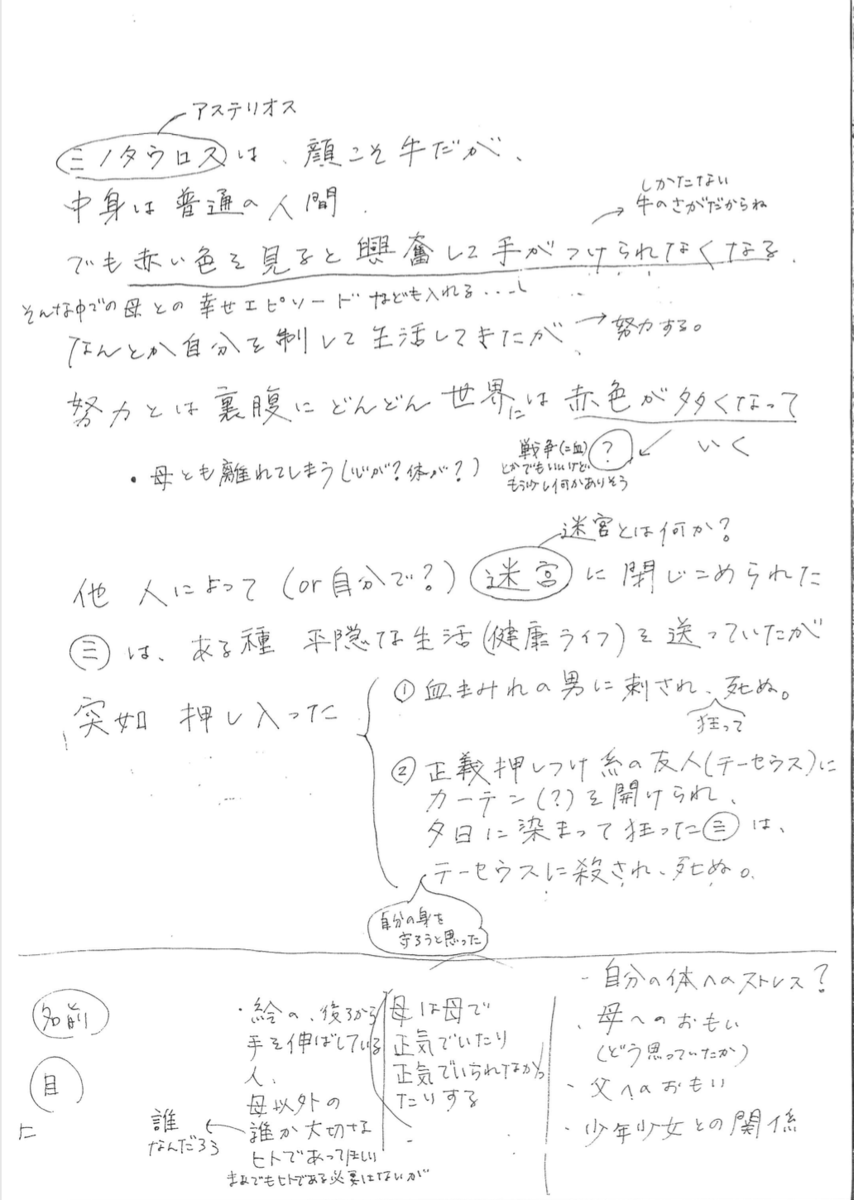 アステリオス
ミノタウロスは、顔こそ牛だが、
中身は普通の人間.
しかたない
牛のさがだからね
でも赤い色を見ると興奮して手がつけられなくなる.
そんな中での母との幸せエピソードなども入れる...
なんとか自分を制して生活してきたが
→努力する。
努力とは裏腹にどんどん世界には赤色が多くなって
いく
戦争(=血)
とかでもいいけど、
もう少し何かありそう
?
・母とも離れてしまう(心が?体が?)
迷宮とは何か?
他人によって(or自分で?)迷宮に閉じこめられた
ミは、ある種 平隠な生活(健康ライフ)を送っていたが
突如 押し入った
① 血まみれの男に刺され、死ぬ。
狂って
② 正義押しつけ系の友人(テーセウス)に
カーテン(?)を開けられ、
夕日に染まって狂ったミは、
テーセウスに殺され、死ぬ。
自分の身を
守ろうと思った
名前
目
に
・絵の、後ろから
手を伸ばしている
人、
母以外の
誰か大切な
ヒトであってほしい
まぁでもヒトである必要はないが
誰
なんだろう
母は母で
正気でいたり
正気でいられなかっ
たりする
・自分の体へのストレス?
・母へのおもい
(どう思っていたか)
・父へのおもい
・少年少女との関係